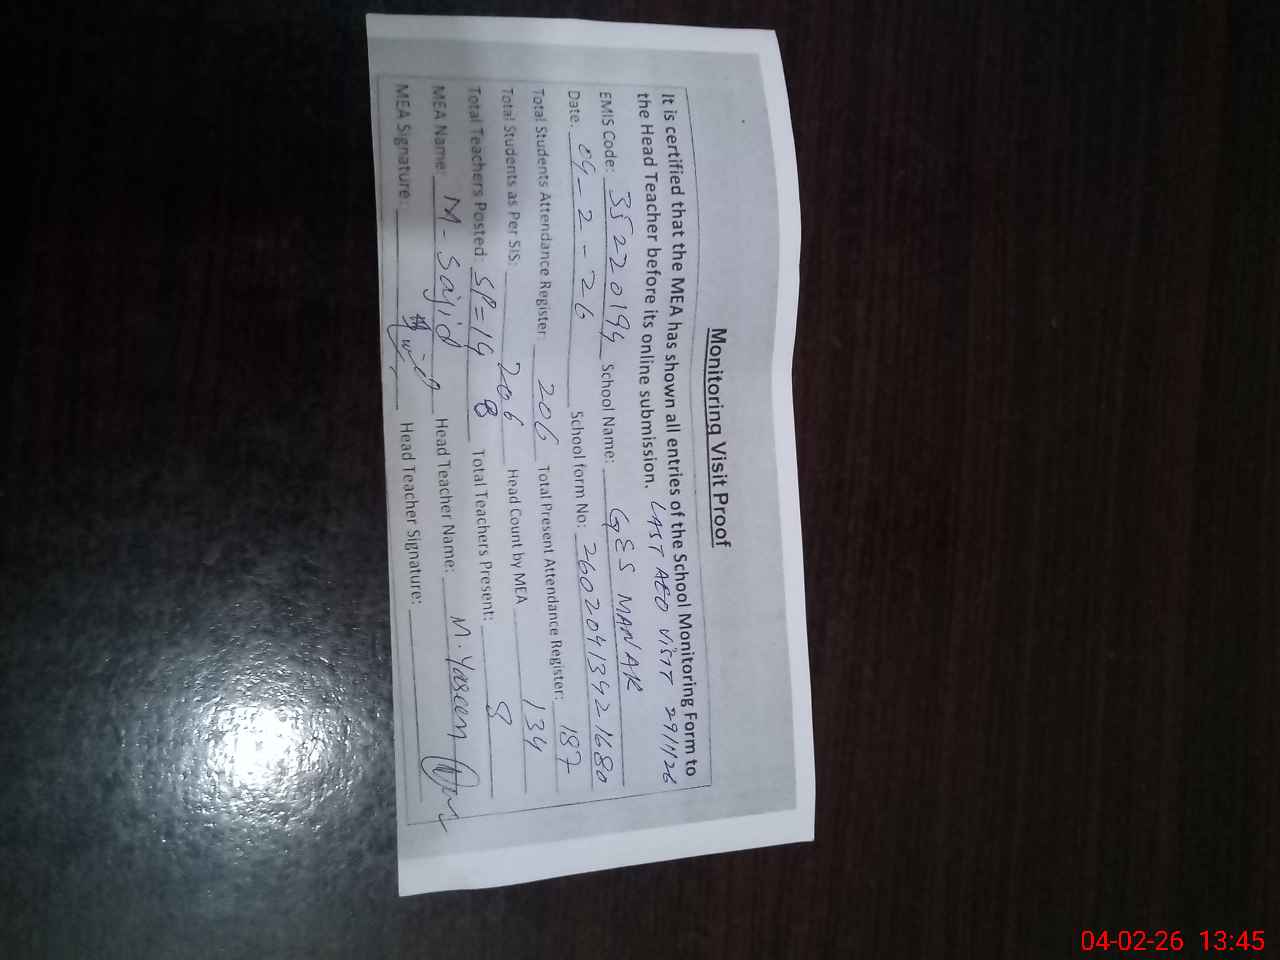 Monitoring Visit Proof
It is certified that the MEA has shown all entries of the School Monitoring Form to
the Head Teacher before its online submission. LAST AEO VISIT 29/1/26
EMIS Code: 35220194 School Name: GES MANAR
Date: 04-2-26 School form No: 260204139421680
Total Students Attendance Register: 206 Total Present Attendance Register: 187
Total Students as Per SIS: 206 Head Count by MEA 134
Total Teachers Posted: SP=14 8 Total Teachers Present: 8
MEA Name: M-Sajid Head Teacher Name: M.Yaseen
MEA Signature: Head Teacher Signature:
04-02-26 13:45